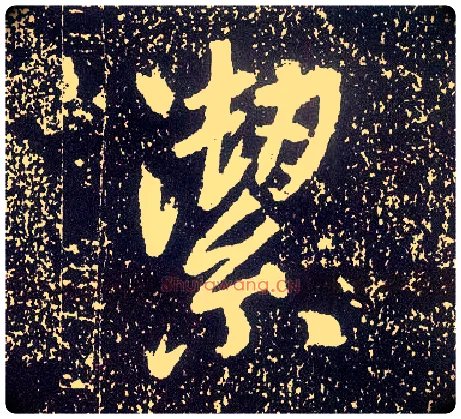 潔
shufawang.cn